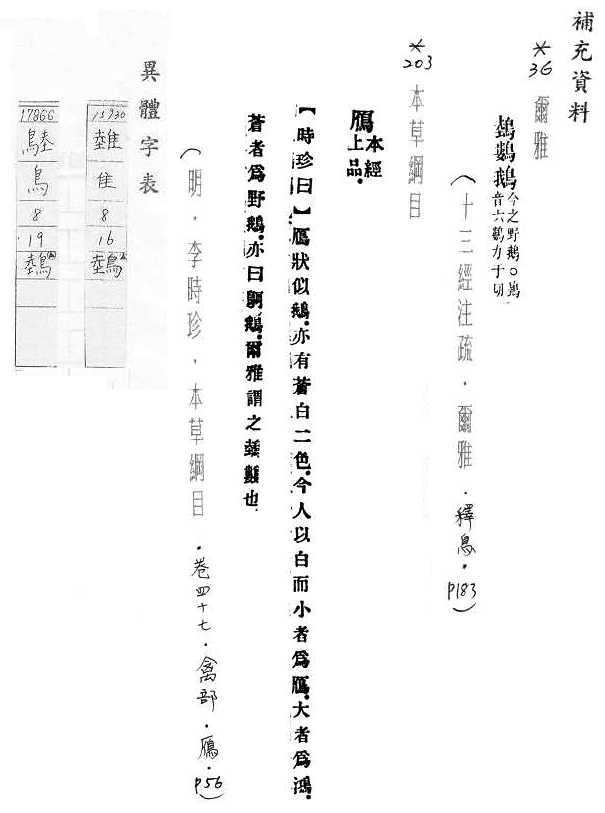 補充資料
*36 爾雅
鵱鷜鵝 今之野鵝○鵱
音六鷜力于切
(十三經注疏．爾雅．釋鳥．P183)
*203 本草綱目
鴈 本經
上品．
【時珍曰】鴈狀似鵝．亦有蒼白二色．今人以白而小者爲鴈．大者爲鴻．
蒼者爲野鵝．亦曰鴚鵝．爾雅謂之鵱鷜也
(明．李時珍．本草綱目．卷四十七．禽部．鴈．P56)
異體字表
隹
8
16
17866
鳥
8
19